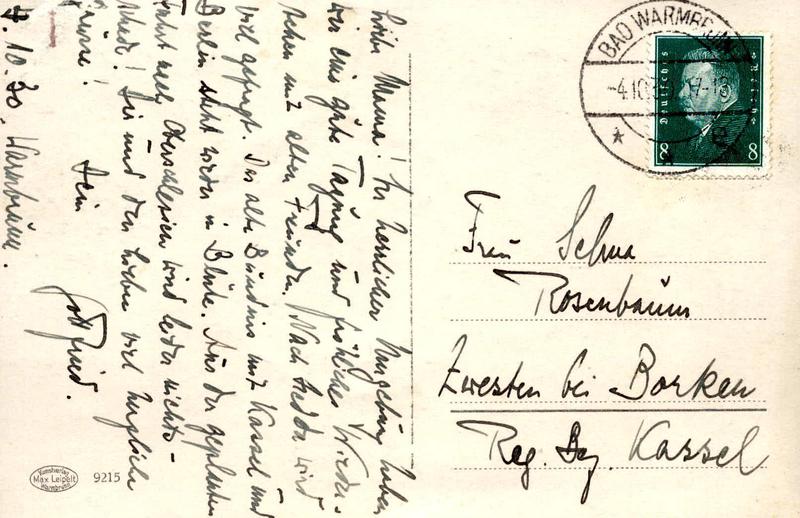 4.10.30, Warmbrunn.
Liebe Mama! In herrlicher Umgebung haben
wir eine gute Tagung und fröhliches Wieder-
sehen mit alten Freunden. Nach Liedern wird
viel gefragt. Das alte Bündnis mit Kassel und
Berlin steht wieder in Blüte. Aus der geplanten
Fahrt nach Oberschlesien wird leider nichts
mehr! Dir und den Lieben viel herzliche
Grüsse!
Dein
Gottfried.
BAD WARMBRUNN
-4.10.30 17-18
Deutsches Reich
8 8
Frau Selma
Rosenbaum
Zwesten bei Borken
Reg. Bez. Kassel
Kunstverlag
Max Leipelt
Warmbrunn
9215